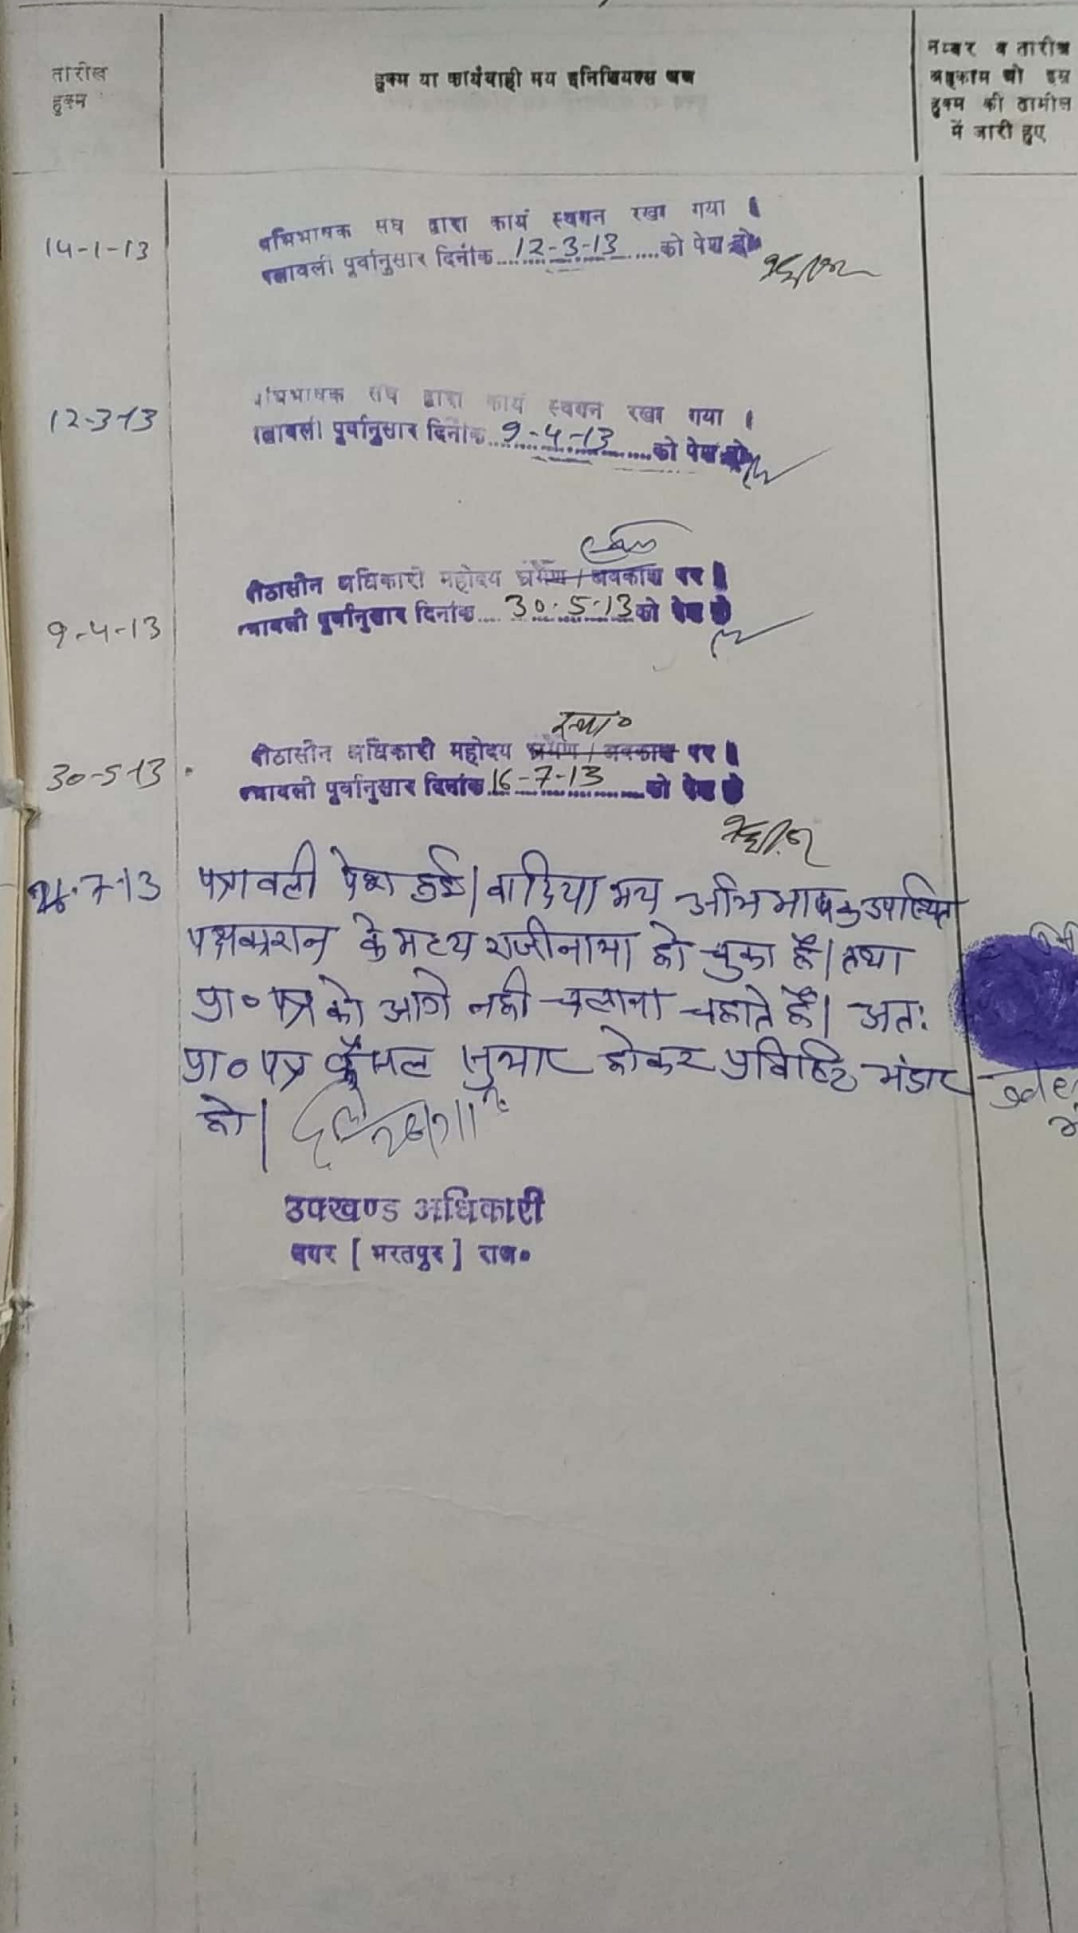 तारीख
हुक्म
हुक्म या कार्यवाही मय इनिशियल्स जज
नम्बर व तारीख
अहकाम जो इस
हुक्म की तामील
में जारी हुए
14-1-13
अभिभाषक संघ द्वारा कार्य स्थगन रखा गया ।
पत्रावली पूर्वानुसार दिनांक 12-3-13 को पेश हो
12-3-13
अभिभाषक संघ द्वारा कार्य स्थगन रखा गया ।
पत्रावली पूर्वानुसार दिनांक 9-4-13 को पेश हो
9-4-13
पीठासीन अधिकारी महोदय भ्रमण / अवकाश पर ।
पत्रावली पूर्वानुसार दिनांक 30.5.13 को पेश हो
30-5-13
पीठासीन अधिकारी महोदय भ्रमण / अवकाश पर ।
पत्रावली पूर्वानुसार दिनांक 16-7-13 को पेश हो
7-13
पत्रावली पेश हुई। वादिया मय अभिभाषक उपस्थित
पक्षकारान के मध्य राजीनामा हो चुका है। तथा
प्रा० पत्र को आगे नही चलाना चहाते है। अतः
प्रा० पत्र फैसल शुमार होकर प्रविष्टि भंडार
हो।
उपखण्ड अधिकारी
नगर [ भरतपुर ] राज०